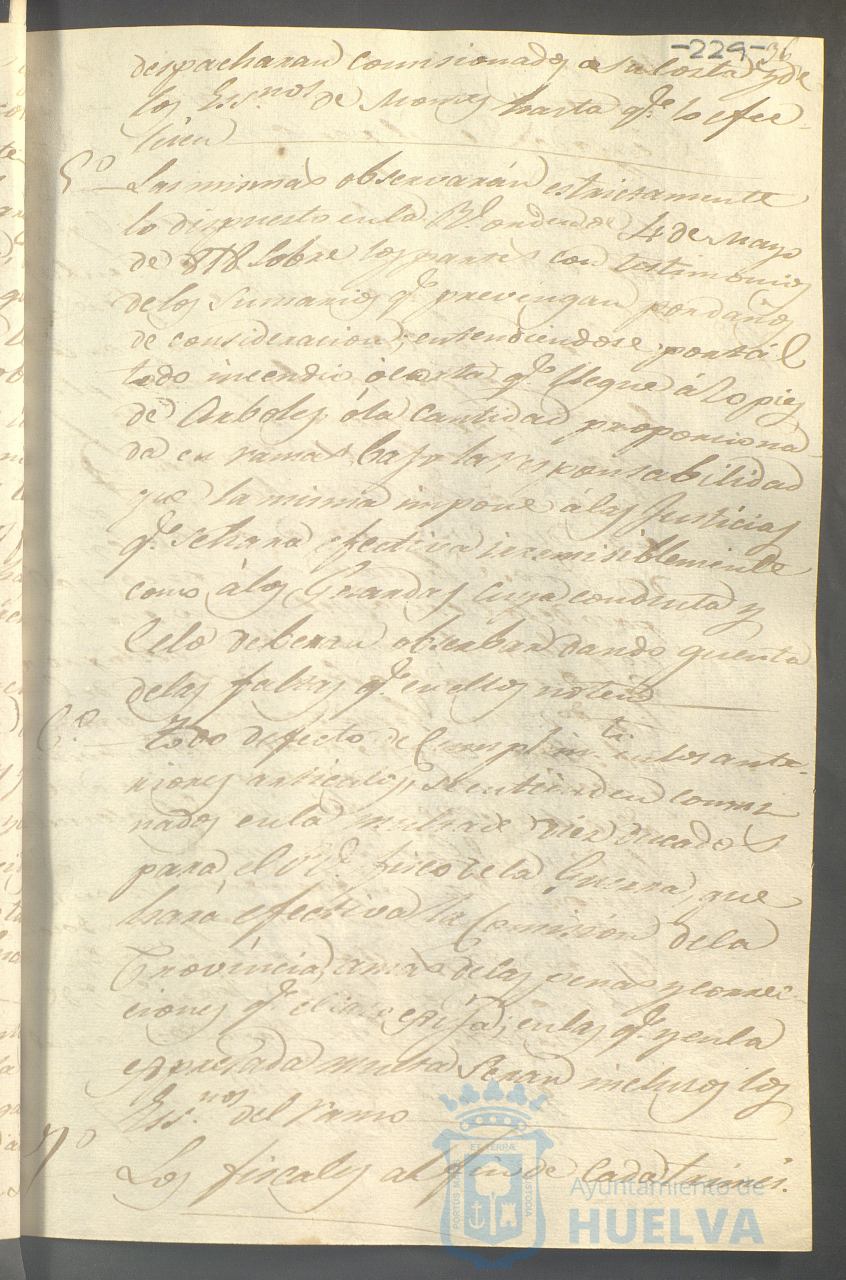 -229- 36
despacharan comisionados a su Costa y de
los Ess.nos de Montes hasta q.e lo efec-
tuen
5.o Las mismas observarán estrictamente
lo dispuesto en la Rl. orden de 4 de Mayo
de 818 sobre los partes con testimonios
de los sumarios q.e prevengan por daños
de consideracion, entendiendose por tál
todo incendio ó corta q.e llegue á 20 pies
de Arboles ó la cantidad proporciona-
da en ramas bajo la responsabilidad
que la misma impone á las Justicias
q.e se hara efectiva irremisiblemente
como á los Guardas cuya conducta y
Celo deberan obserbar dando quenta
de las faltas q.e en ellos noten
6.o Todo defecto de Cumplim.to en los ante-
riores articulos se entienden conmi
nados en la multa de diez ducados
para el Rl. fisco de la Guerra, que
hará efectiva la Comisión de la
Provincia, amas de las penas y correc-
ciones q.e el caso exija; en las q.e y en la
expresada multa seran inclusos los
Ess.nos del Ramo
7.o
Los fiscales al fin de cada trimes.
ET TERRAE
PORTUS MARIS
CUSTODIA
Ayuntamiento de
HUELVA